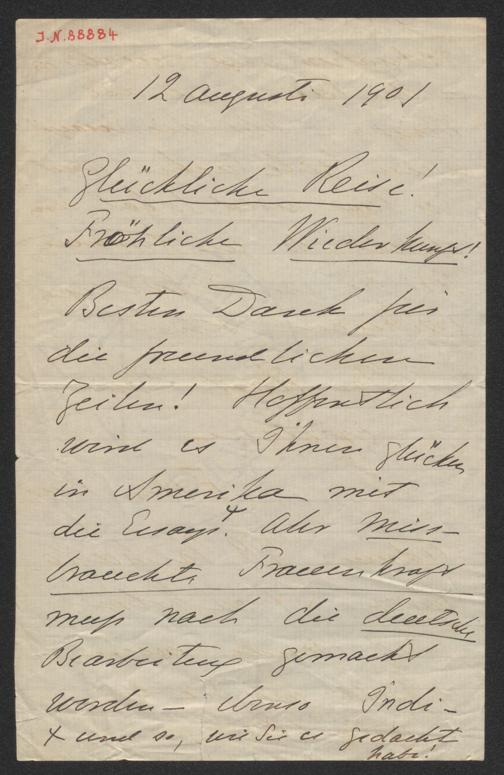 J.N.88884
12 augusti 1901
Glückliche Reise!
Fröhliche Wiederkunft!
Besten Dank für
die freundlichen
Zeilen! Hoffentlich
wird es Ihnen glücken
in Amerika mit
die Essays. + Aber Miss-
brauchte Frauenkraft
muss nach die deutsche
Bearbeitung gemacht
werden – ebenso Indi-
+ und so, wie Sie es gedacht
habe!